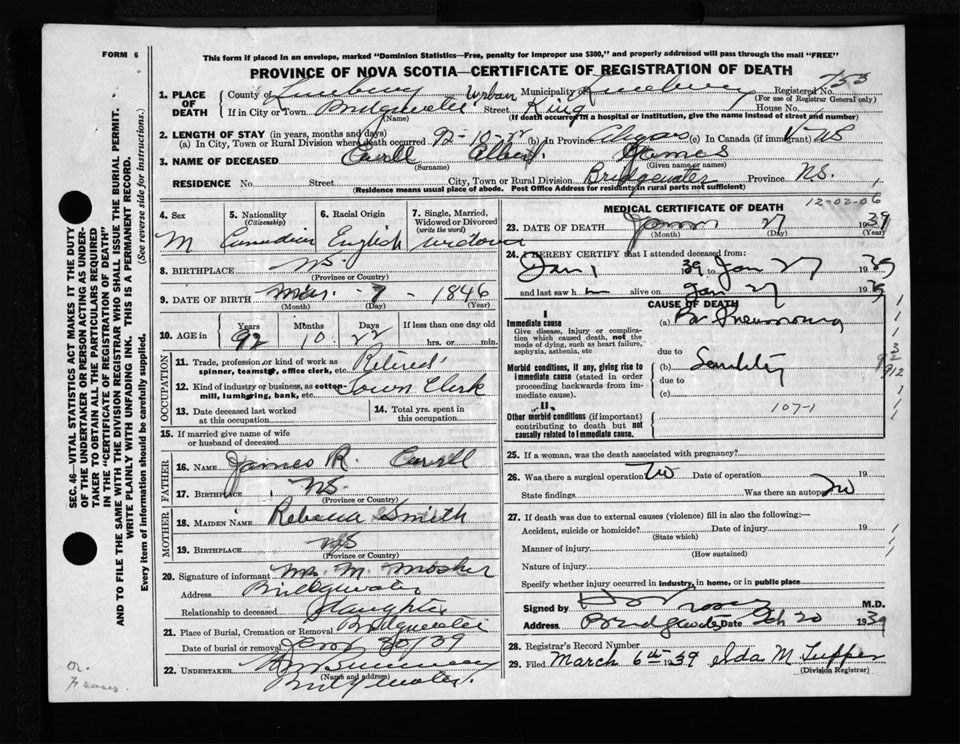 FORM 6
This form if placed in an envelope, marked "Dominion Statistics—Free, penalty for improper use $300," and properly addressed will pass through the mail "FREE"
PROVINCE OF NOVA SCOTIA—CERTIFICATE OF REGISTRATION OF DEATH
1. PLACE OF DEATH County of Lunenburg Urban Municipality of Lunenburg Registered No. 753
(For use of Registrar General only)
If in City or Town Bridgewater Street King House No.
(Name) (If death occurred in a hospital or institution, give the name instead of street and number)
2. LENGTH OF STAY (in years, months and days)
(a) In City, Town or Rural Division where death occurred 92-10-22 (b) In Province Always (c) In Canada (if immigrant)
3. NAME OF DECEASED James
(Surname) (Given name or names)
RESIDENCE No. Street City, Town or Rural Division Bridgewater Province N.S.
(Residence means usual place of abode. Post Office Address for residents in rural parts not sufficient)
4. Sex M
5. Nationality (Citizenship) Canadian
6. Racial Origin English
7. Single, Married, Widowed or Divorced (write the word) widower
8. BIRTHPLACE N.S.
(Province or Country)
9. DATE OF BIRTH 7 - 1846
(Month) (Day) (Year)
10. AGE in Years 92 Months 10 Days 22 If less than one day old hrs. or min.
OCCUPATION
11. Trade, profession or kind of work as spinner, teamster, office clerk, etc. Retired
12. Kind of industry or business, as cotton-mill, lumbering, bank, etc. Town Clerk
13. Date deceased last worked at this occupation
14. Total yrs. spent in this occupation
15. If married give name of wife or husband of deceased
FATHER
16. NAME James R.
17. BIRTHPLACE N.S.
(Province or Country)
MOTHER
18. MAIDEN NAME Rebecca Smith
19. BIRTHPLACE N.S.
(Province or Country)
20. Signature of informant Mrs. M. Mosher
Address Bridgewater
Relationship to deceased Daughter
21. Place of Burial, Cremation or Removal Bridgewater
Date of burial or removal 30/39
22. UNDERTAKER
(Name and address)
Bridgewater.
MEDICAL CERTIFICATE OF DEATH
12-02-06
23. DATE OF DEATH 27 1939
(Month) (Day) (Year)
24. I HEREBY CERTIFY that I attended deceased from:
Jan 1 39 to Jan 27 1939
and last saw h alive on Jan 27 1939
CAUSE OF DEATH
I
Immediate cause
Give disease, injury or complication which caused death, not the mode of dying, such as heart failure, asphyxia, asthenia, etc
(a) Br Pneumonia
due to
Morbid conditions, if any, giving rise to immediate cause (stated in order proceeding backwards from immediate cause).
(b) Senility
due to
(c)
II
Other morbid conditions (if important) contributing to death but not causally related to immediate cause.
107-1
25. If a woman, was the death associated with pregnancy?
26. Was there a surgical operation no Date of operation 19
State findings Was there an autopsy no
27. If death was due to external causes (violence) fill in also the following:—
Accident, suicide or homicide? Date of injury 19
(State which)
Manner of injury
(How sustained)
Nature of injury
Specify whether injury occurred in industry, in home, or in public place
Signed by M.D.
Address Bridgewater Date Feb 20 1939
28. Registrar's Record Number
29. Filed March 6th 1939 Ida M Tupper
(Division Registrar)
SEC. 46—VITAL STATISTICS ACT MAKES IT THE DUTY OF THE UNDERTAKER OR PERSON ACTING AS UNDERTAKER TO OBTAIN ALL THE PARTICULARS REQUIRED IN THE "CERTIFICATE OF REGISTRATION OF DEATH" AND TO FILE THE SAME WITH THE DIVISION REGISTRAR WHO SHALL ISSUE THE BURIAL PERMIT.
WRITE PLAINLY WITH UNFADING INK. THIS IS A PERMANENT RECORD.
Every item of information should be carefully supplied. (See reverse side for instructions.)